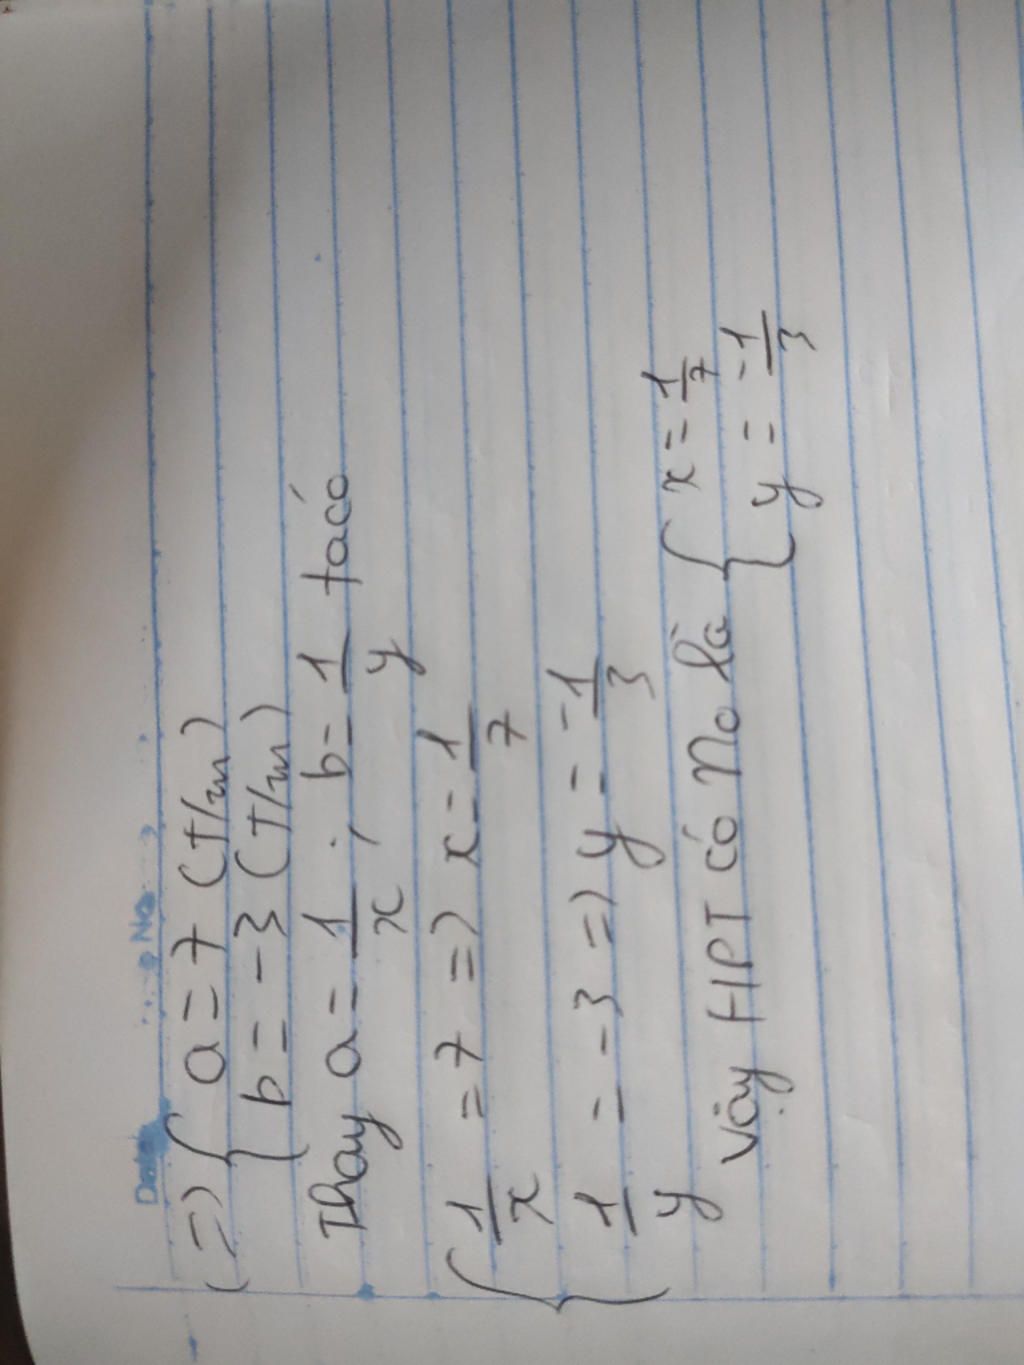 Date No
(=) { a = 7 (T/m)
b = -3 (T/m)
Thay a = 1/x ; b = 1/y ta có
{ 1/x = 7 => x = 1/7
1/y = -3 => y = -1/3
Vậy HPT có no là { x = 1/7
y = -1/3